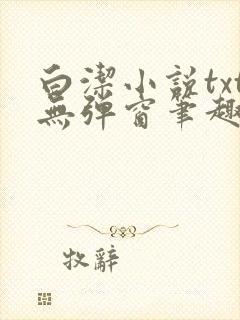 白潔小説txt
無彈窗筆趣
牧辭